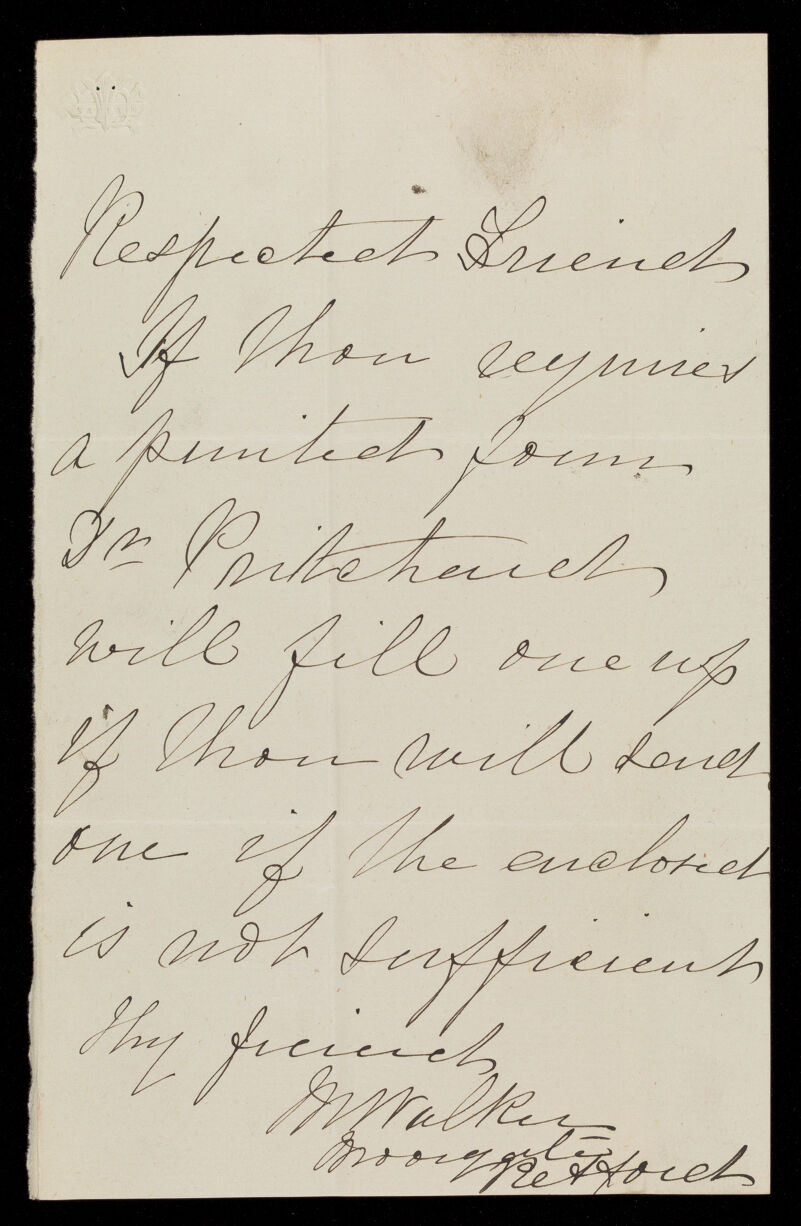 Respected Friend
If thou requires
a printed form
Dr Pritchard
will fill one up
if thou will send
one if the enclosed
is not sufficient
Thy friend
M Walker
Moorgate
Retford